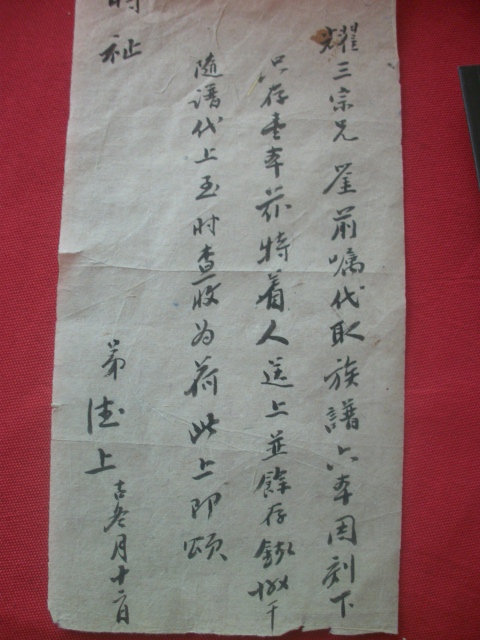 耀三宗兄鉴前嘱代取族譜六本因刻下
只存壹本茲特着人送上並餘存
随譜代上至时查收为荷此上即颂
時祉
弟 上 月十二日